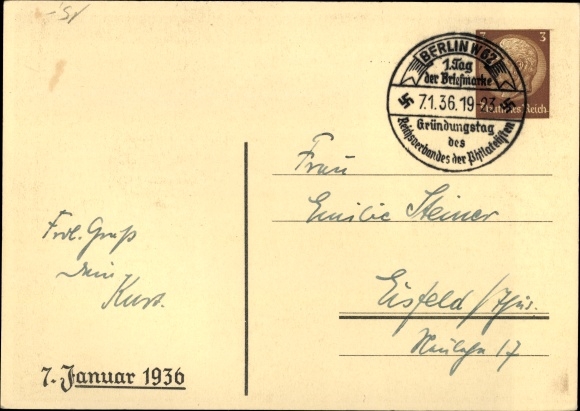 BERLIN W62
1. Tag
der Briefmarke
7.1.36.19-23
Gründungstag
des
Reichsverbandes der Philatelisten
3 3
Deutsches Reich
Frau
Emilie Steiner
Eisfeld / Thür.
17
Frdl. Gruß
Dein
Kurt.
7. Januar 1936